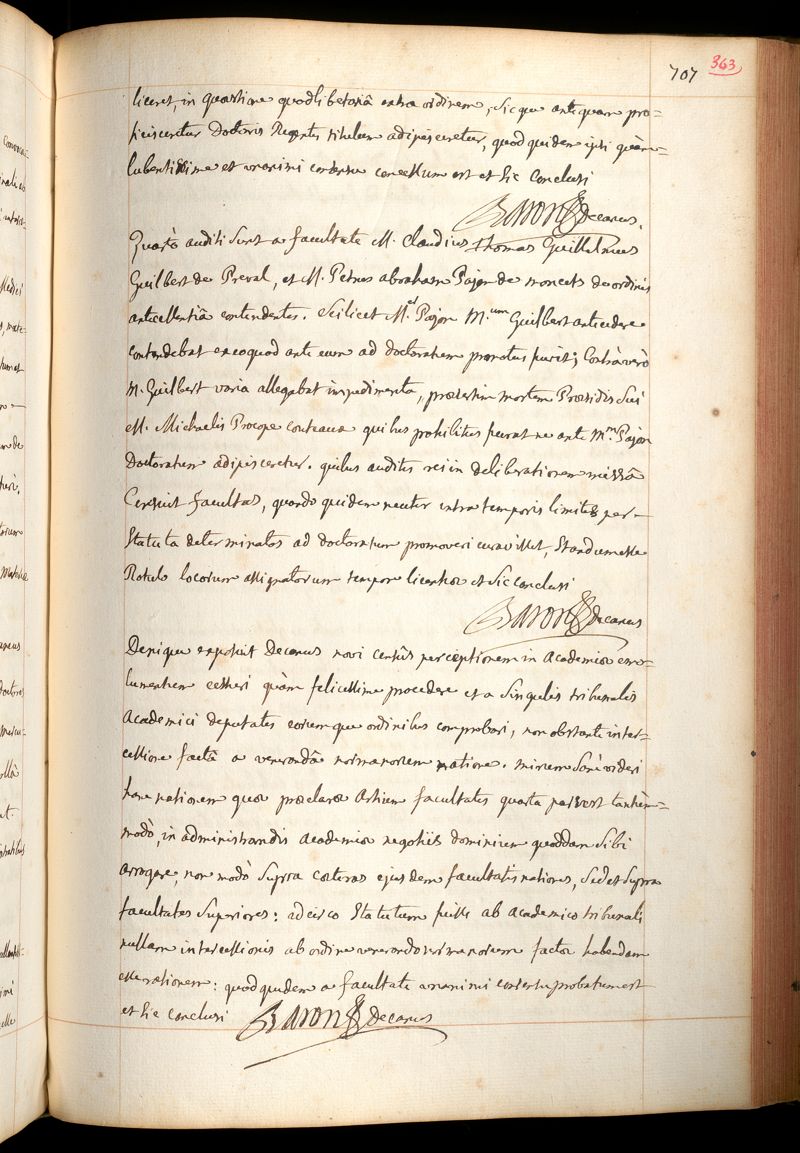 707 363
liceret, in quæstione quodlibetariâ extra ordinem, sicque antequam pro=
ficisceretur Doctoris Regentis titulum adipisceretur, quod quidem ipsi quàm=
lubentissime et unanimi consensu concessum est et sic conclusi
Baron Decanus.
Quartò auditi sunt a facultate M. Claudius Thomas Guillelmus
Guilbert de Preval, et M. Petrus abraham Pajon de moncets de ordinis
antecellentiâ contendentes. scilicet M. Pajon M.um Guilbert antecedere
contendebat ex eo quod ante eum ad doctoratum promotus fuerit; Contrà verò
M. Guilbert varia allegabat impedimenta, præsertim mortem Præsidis sui
M. Michaelis Procope couteaux quibus prohibitus fuerat ne ante M.m Pajon
Doctoratum adipisceretur. quibus auditis rei in deliberationem missâ
Censuit facultas, quando quidem neuter intra temporis limites per
statuta determinatos ad doctoratum promoveri curavisset, standum esse
Rotulo locorum assignatorum tempore licentiæ et sic conclusi
Baron Decanus
Denique exposuit Decanus novi censûs perceptionem in Academiæ emo=
lumentum cessuri quàm felicissime procedere et a singulis tribunalis
Academici deputatis eorumque ordinibus comprobari, non obstante inter=
cessione factâ a venerandâ normanorum natione. mirum sanè videri
hanc nationem quæ præclaræ Artium facultatis quarta pars est tantùm=
modò, in administrandis Academiæ negotiis dominium quoddam sibi
arrogare, non modò supra cæteras ejusdem facultatis nationes, sed et supra
facultates superiores: adcirco statutum fuisse ab academico tribunali
nullam intercessionis ab ordine venerandæ normanorum factæ habendam
esse rationem: quod quidem a facultate unanimi consensu probatum est
et sic conclusi Baron Decanus